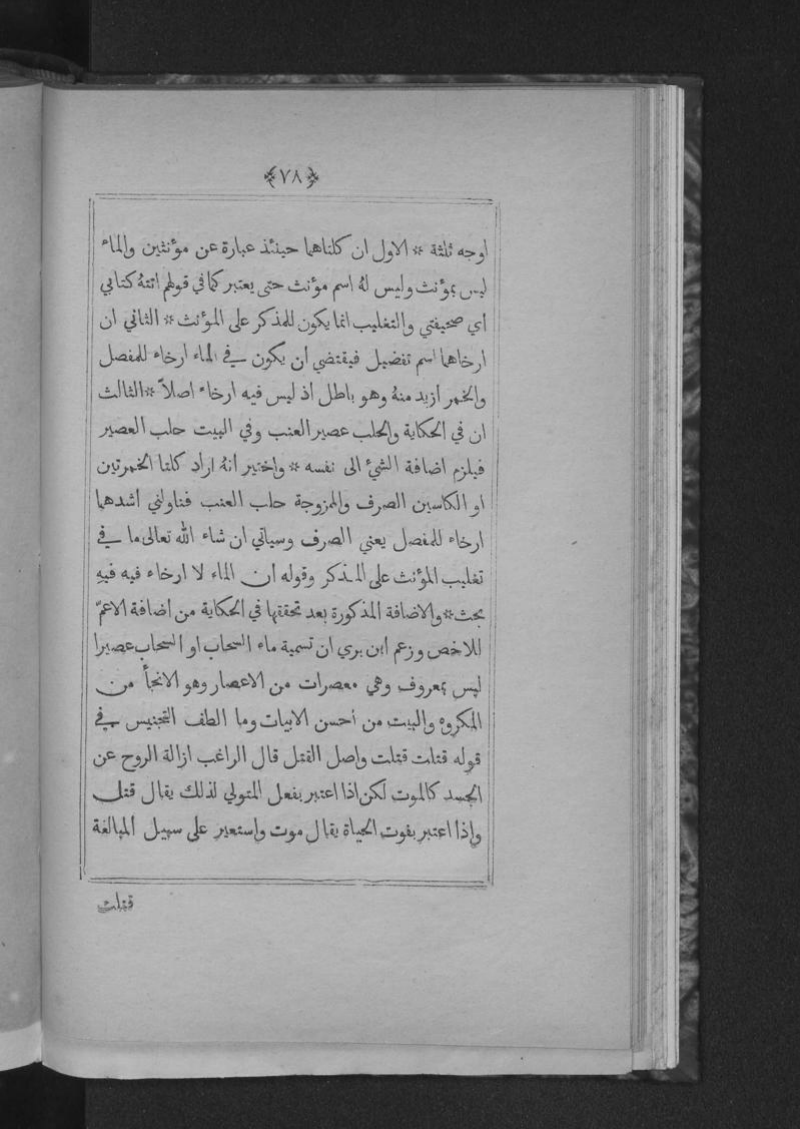 ﴿٧٨﴾
اوجه ثلثة * الاول ان كلتاهما حينئذ عبارة عن مؤنثين والماء
ليس بمؤنث وليس لهُ اسم مؤنث حتى يعتبر كما في قولهم اتتهُ كتابي
اي صحيفتي والتغليب انما يكون للمذكر على المؤنث * الثاني ان
ارخاهما اسم تفضيل فيقتضي ان يكون في الماء ارخاء للمفصل
والخمر ازيد منهُ وهو باطل اذ ليس فيه ارخاء اصلاً * الثالث
ان في الحكاية والحلب عصير العنب وفي البيت حلب العصير
فيلزم اضافة الشيّ الى نفسه * واختير انهُ اراد كلتا الخمرتين
او الكاسين الصرف والممزوجة حلب العنب فناولني اشدهما
ارخاء للمفصل يعني الصرف وسياتي ان شاء الله تعالى ما في
تغليب المؤنث على المذكر وقوله ان الماء لا ارخاء فيه فيهِ
بحث * والاضافة المذكورة بعد تحققها في الحكاية من اضافة الاعمّ
للاخص وزعم ابن بري ان تسمية ماء السحاب او السحاب عصيرا
ليس بمعروف وهي معصرات من الاعصار وهو الانجأ من
المكروه والبيت من احسن الابيات وما الطف التجنيس في
قوله قتلت قتلت واصل القتل قال الراغب ازالة الروح عن
الجسد كالموت لكن اذا اعتبر بفعل المتولي لذلك يقال قتل
واذا اعتبر بفوت الحياة يقال موت واستعير على سبيل المبالغة
قتلت